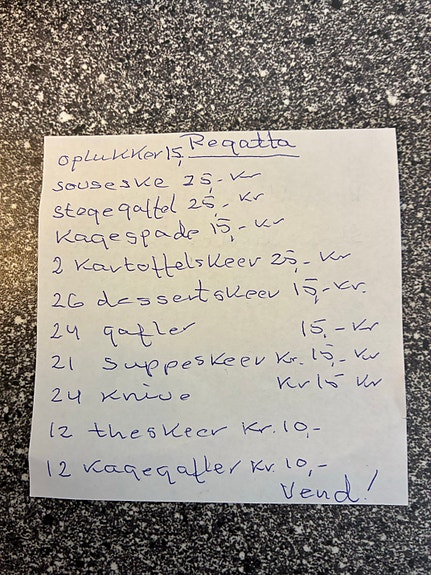 Regatta
oplukker 15,
souseske 25,- kr
stegegaffel 25,- kr
Kagespade 15,- kr
2 Kartoffelskeer 25,- kr
26 dessertskeer 15,- kr.
24 gafler 15,- kr
21 suppeskeer kr. 15,- kr
24 knive kr 15 kr
12 theskeer kr. 10,-
12 kagegafler kr. 10,-
Vend!